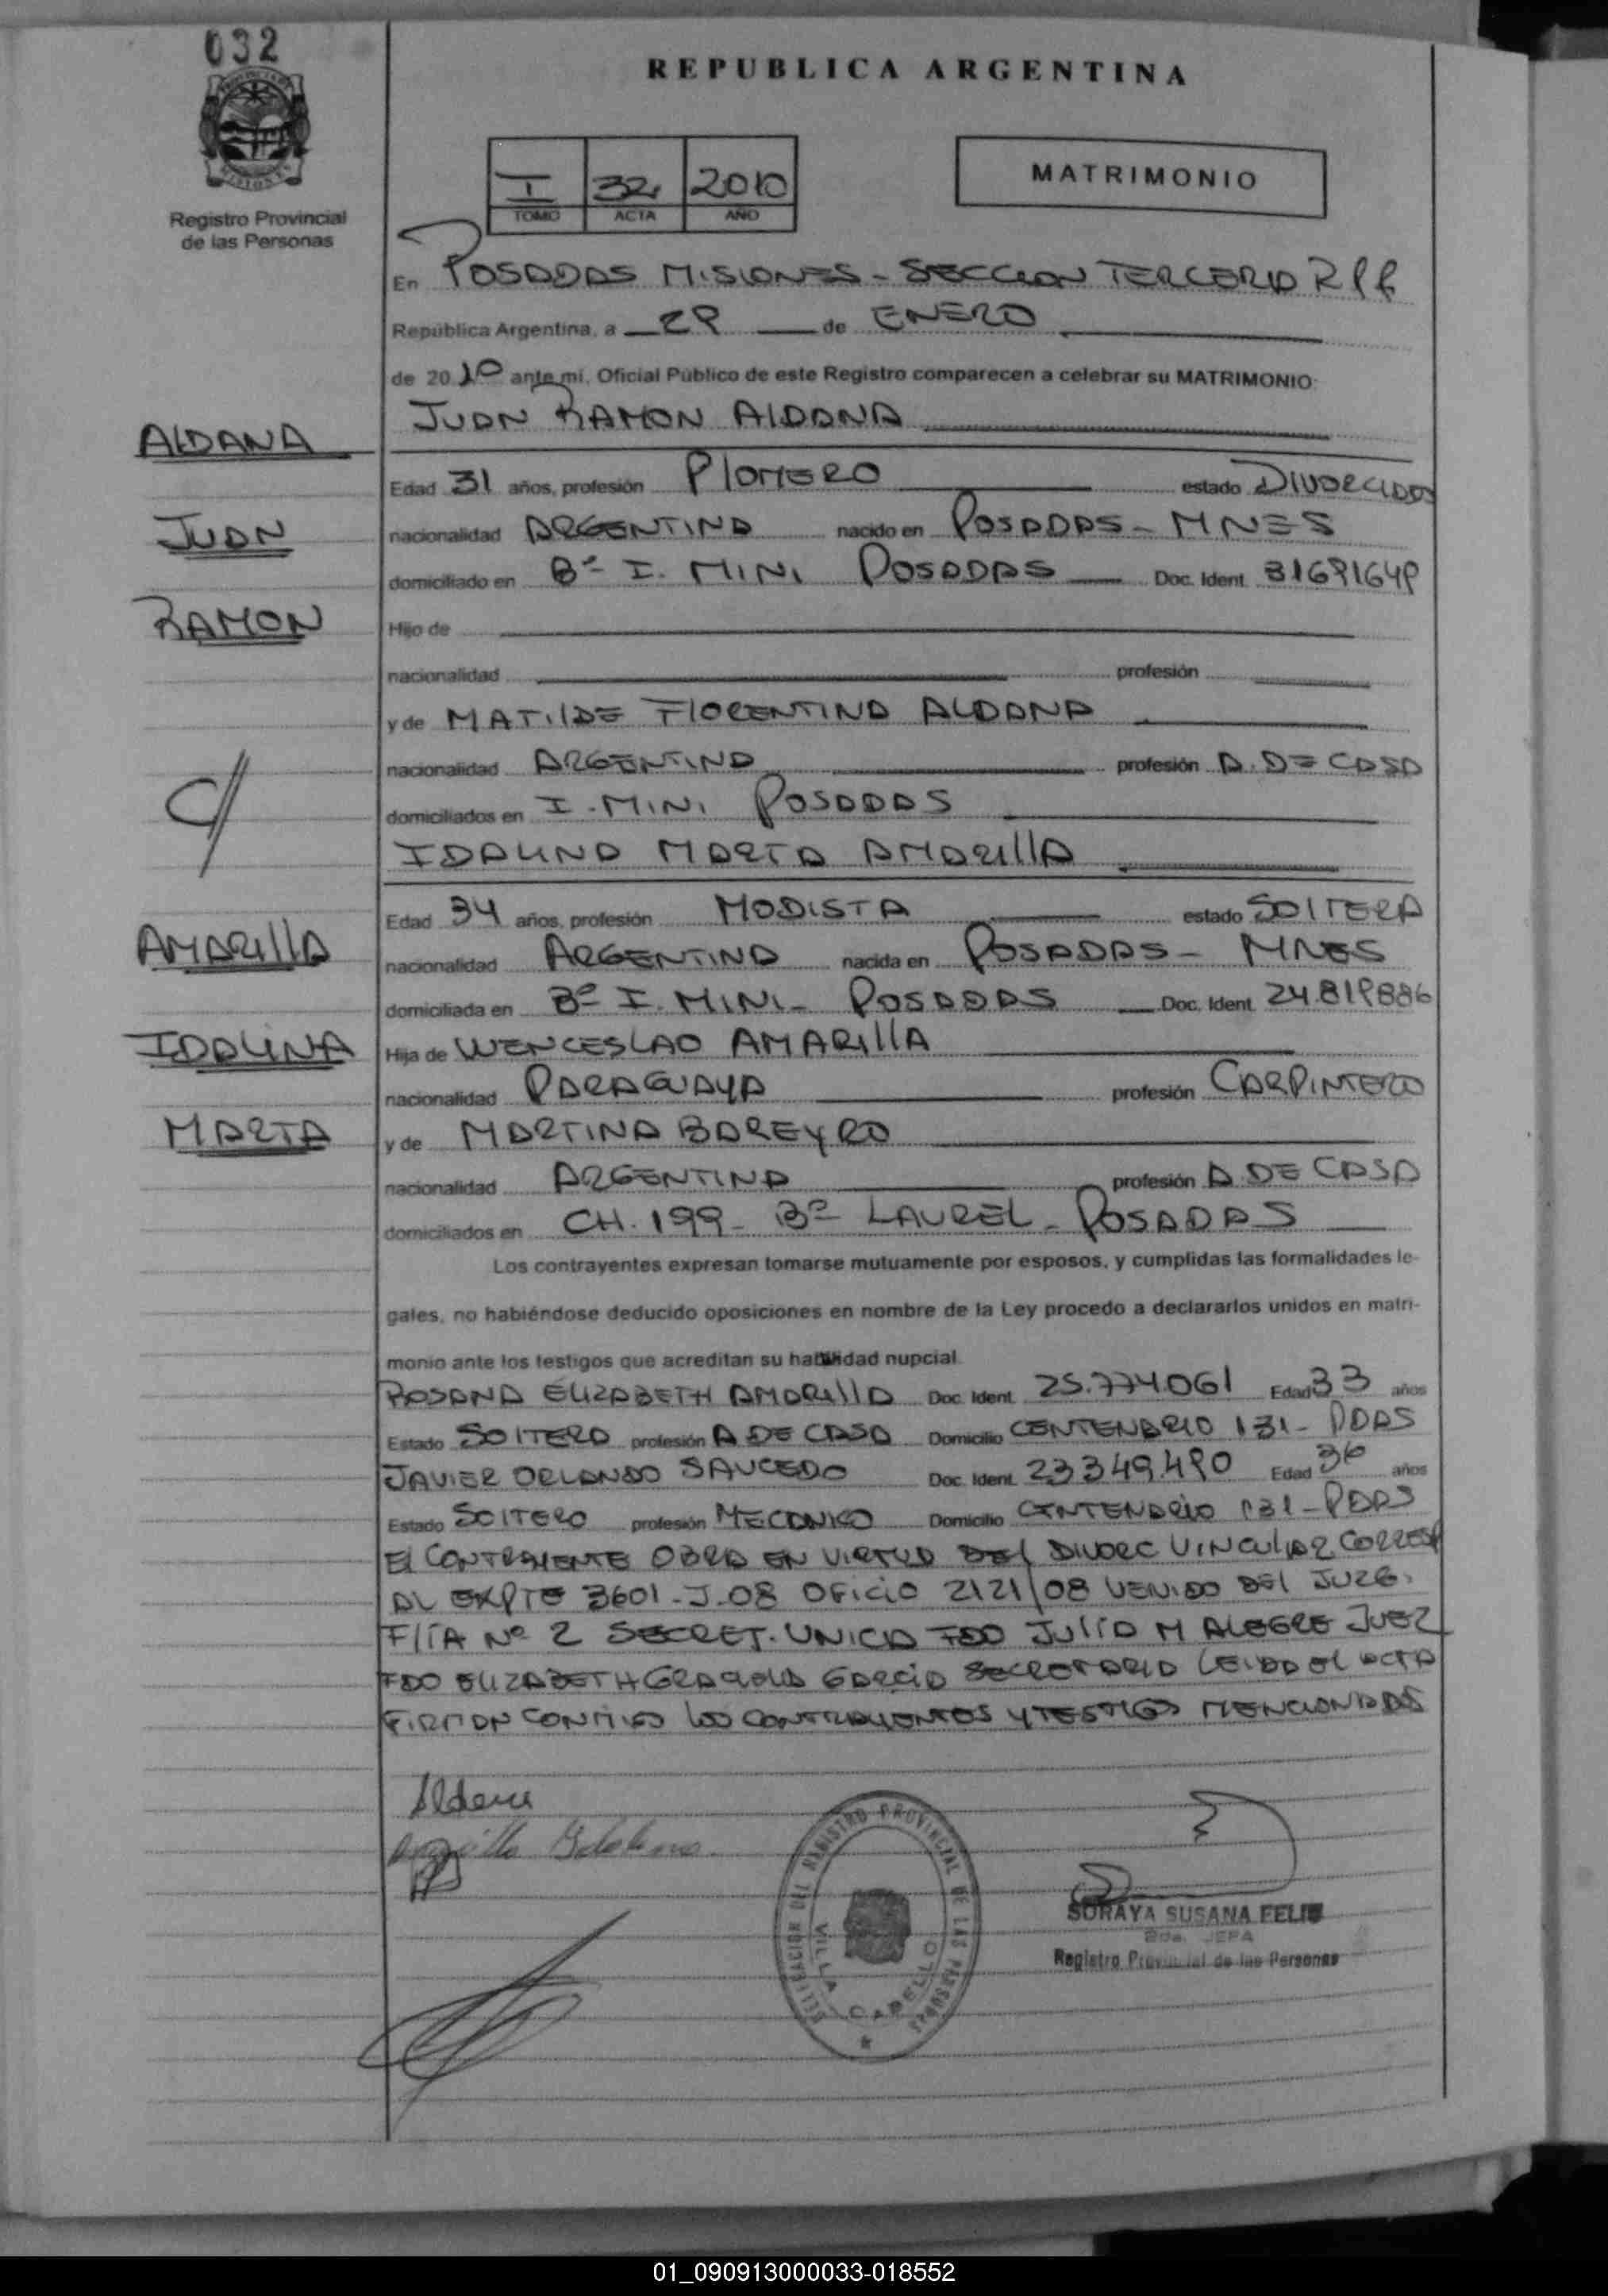 032
REPUBLICA ARGENTINA
I 32 2010
TOMO ACTA AÑO
MATRIMONIO
Registro Provincial
de las Personas
En POSADAS MISIONES - SECCION TERCERA RPP
República Argentina, a 29 de ENERO
de 2010 ante mí, Oficial Público de este Registro comparecen a celebrar su MATRIMONIO:
JUAN RAMON ALDANA
ALDANA
Edad 31 años, profesión PLOMERO estado DIVORCIADO
JUAN
nacionalidad ARGENTINA nacido en POSADAS - MNES
domiciliado en Bº I. MINI POSADAS Doc. Ident. 31691649
RAMON
Hijo de
nacionalidad profesión
y de MATILDE FLORENTINA ALDANA
nacionalidad ARGENTINA profesión A. DE CASA
C/
domiciliados en I. MINI POSADAS
IDALINA MARTA AMARILLA
Edad 34 años, profesión MODISTA estado SOLTERA
AMARILLA
nacionalidad ARGENTINA nacida en POSADAS - MNES
domiciliada en Bº I. MINI - POSADAS Doc. Ident. 24.819886
IDALINA
Hija de WENCESLAO AMARILLA
nacionalidad PARAGUAYA profesión CARPINTERO
MARTA
y de MARTINA BAREYRO
nacionalidad ARGENTINA profesión A DE CASA
domiciliados en CH. 199 - Bº LAUREL - POSADAS
Los contrayentes expresan tomarse mutuamente por esposos, y cumplidas las formalidades le-
gales, no habiéndose deducido oposiciones en nombre de la Ley procedo a declararlos unidos en matri-
monio ante los testigos que acreditan su habilidad nupcial.
ROSANA ELIZABETH AMARILLA Doc. Ident. 25.774.061 Edad 33 años
Estado SOLTERA profesión A DE CASA Domicilio CENTENARIO 131 - PDAS
JAVIER ORLANDO SAUCEDO Doc. Ident. 23349.490 Edad 36 años
Estado SOLTERO profesión MECANICO Domicilio CENTENARIO 131 - PDAS
EL CONTRAYENTE OBRA EN VIRTUD DEL DIVORC VINCULAR CORRESP
AL EXPTE 3601 - J - 08 OFICIO 2121/08 VENIDO DEL JUZG.
FLIA Nº 2 SECRET. UNICA FDO JULIA M ALEGRE JUEZ
FDO ELIZABETH GRACIELA GARCIA SECRETARIA LEIDA EL ACTA
FIRMAN CONMIGO LOS CONTRAYENTES Y TESTIGOS MENCIONADOS
DELEGACION DEL REGISTRO PROVINCIAL DE LAS PERSONAS
VILLA CABELLO
SORAYA SUSANA FELIU
2da. JEFA
Registro Provincial de las Personas
01_090913000033-018552